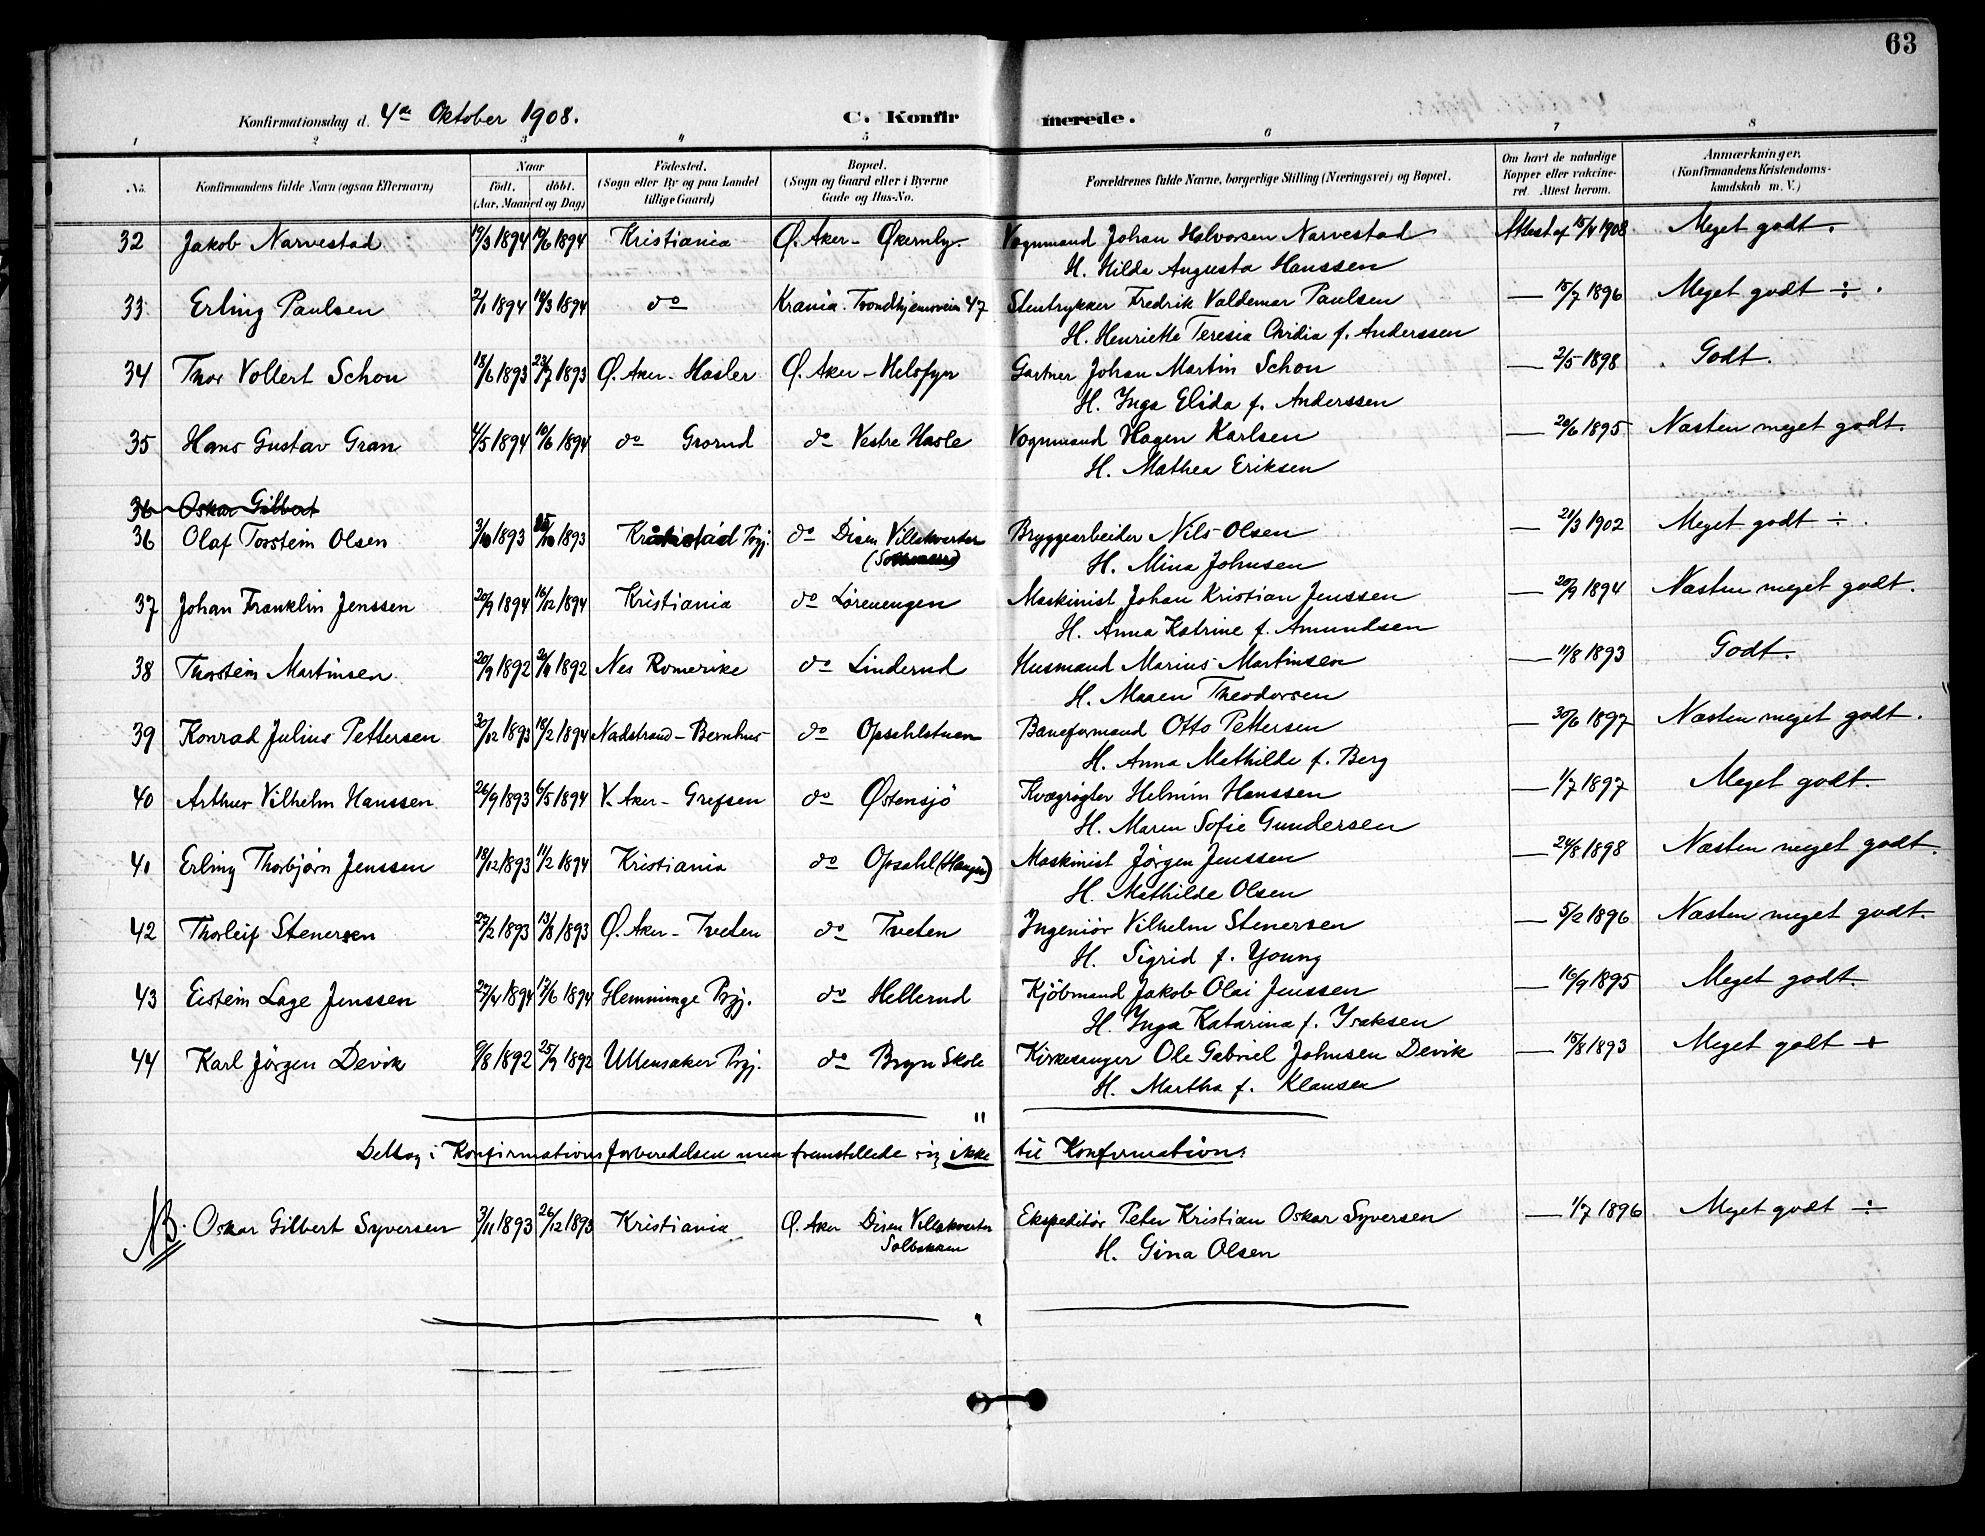 63
Konfirmationsdag d. 4de Oktober 1908. C. Konfirmerede.
1 2 3 4 5 6 7 8
No. Konfirmandens fulde Navn (ogsaa Efternavn) Naar födt. döbt. (Aar, Maaned og Dag) Födested. (Sogn eller By og paa Landet tillige Gaard) Bopæl. (Sogn og Gaard eller i Byerne Gade og Hus-No. Forældrenes fulde Navne, borgerlige Stilling (Næringsvei) og Bopæl. Om havt de naturlige Kopper eller vakcineret. Attest herom. Anmærkninger. (Konfirmandens Kristendomskundskab m. V.)
32 Jakob Narvestad 19/3 1894 17/6 1894 Kristiania Ø. Aker - Økernby Vognmand Johan Halvorsen Narvestad Attest af 15/4 1908 Meget godt.
H. Hilda Augusta Hanssen
33 Erling Paulsen 2/1 1894 18/3 1894 do Krania. Trondhjemsvein 47 Stentrykker Fredrik Valdemar Paulsen — 15/7 1896 Meget godt ÷.
H. Henriette Teresia Ovidia f. Anderssen
34 Thor Vollert Schou 18/6 1893 23/7 1893 Ø. Aker - Hasler Ø. Aker - Helsfyr Gartner Johan Martin Schou — 2/5 1898 Godt.
H. Inga Elida f. Anderssen
35 Hans Gustav Gran 4/5 1894 10/6 1894 do Grorud do Vestre Hasle Vognmand Hagen Karlsen — 20/6 1895 Næsten meget godt.
H. Mathea Eriksen
36 Oskar Gilbert
36 Olaf Torstein Olsen 3/10 1893 1893 Kråkstad Prgj. do Disen Villakvarter Bryggearbeider Nils Olsen — 21/3 1902 Meget godt ÷.
H. Mina Johnsen
37 Johan Franklin Jenssen 20/9 1894 16/12 1894 Kristiania do Lörenengen Maskinist Johan Kristian Jenssen — 20/9 1894 Næsten meget godt.
H. Anna Katrine f. Amundsen
38 Thorstein Martinsen 20/9 1892 1892 Nes Romerike do Linderud Husmand Marius Martinsen — 11/8 1893 Godt.
H. Maren Theodorsen
39 Konrad Julius Pettersen 30/12 1893 18/2 1894 Nadstrand - Bernhus do Opsahlstuen Baneformand Otto Pettersen — 30/6 1897 Næsten meget godt.
H. Anna Mathilde f. Berg
40 Arthur Vilhelm Hanssen 26/9 1893 6/5 1894 V. Aker - Grefsen do Østensjö Kvægrögter Helmin Hanssen — 1/7 1897 Meget godt.
H. Maren Sofie Gundersen
41 Erling Thorbjörn Jenssen 18/12 1893 11/2 1894 Kristiania do Opsahl (Haugen) Maskinist Jörgen Jenssen — 24/8 1898 Næsten meget godt.
H. Mathilde Olsen
42 Thorleif Stenersen 27/2 1893 13/8 1893 Ø. Aker - Tveten do Tveten Ingeniör Vilhelm Stenersen — 5/2 1896 Næsten meget godt.
H. Sigrid f. Young
43 Eistein Lage Jenssen 27/4 1894 17/6 1894 Glemminge Prgj. do Hellerud Kjöbmand Jakob Olai Jenssen — 16/9 1895 Meget godt.
H. Inga Katarina f. Isaksen
44 Karl Jörgen Devik 9/8 1892 25/9 1892 Ullensaker Prgj. do Bryn Skole Kirkesanger Ole Gabriel Johnsen Devik — 15/8 1893 Meget godt +
H. Martha f. Klausen
Deltog i Konfirmationsforberedelsen men fremstillede sig ikke til Konfirmation:
NB. Oskar Gilbert Syversen 3/11 1893 26/12 1893 Kristiania Ø. Aker Disen Villakvarter Solbakken Ekspeditör Peter Kristian Oskar Syversen — 1/7 1896 Meget godt ÷
H. Gina Olsen